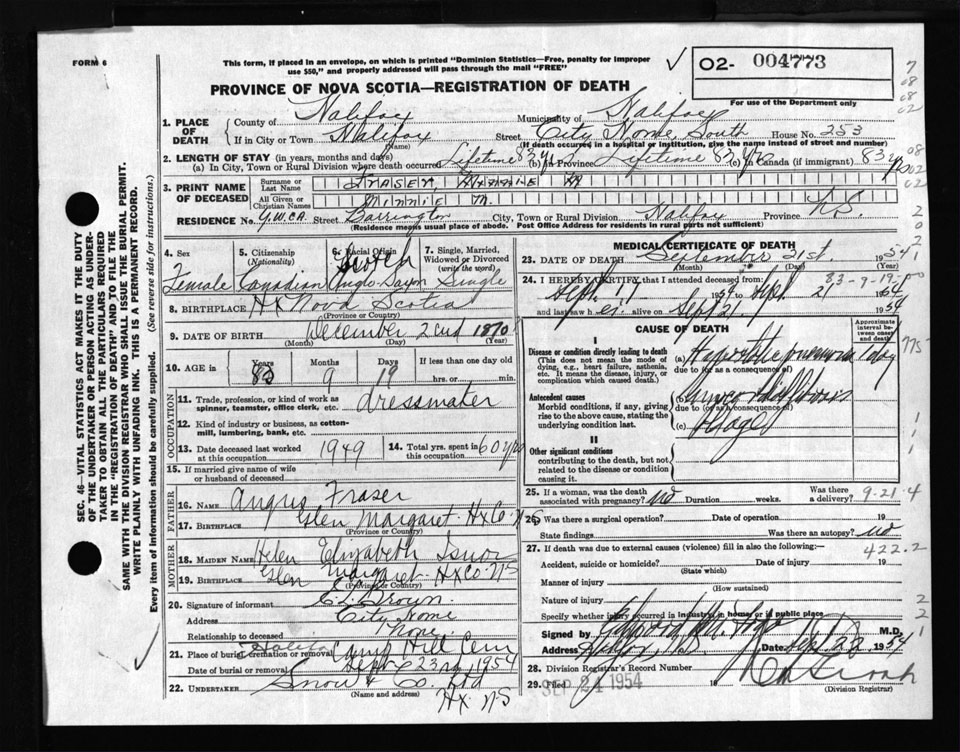 FORM 6
This form, if placed in an envelope, on which is printed "Dominion Statistics—Free, penalty for improper
use $50," and properly addressed will pass through the mail "FREE"
02- 004773
For use of the Department only
PROVINCE OF NOVA SCOTIA—REGISTRATION OF DEATH
1. PLACE OF DEATH
County of Halifax Municipality of Halifax
If in City or Town Halifax Street City Home South House No. 253
(Name) (If death occurred in a hospital or institution, give the name instead of street and number)
2. LENGTH OF STAY (in years, months and days)
(a) In City, Town or Rural Division where death occurred Lifetime 83 yrs (b) In Province Lifetime 83 yrs (c) In Canada (if immigrant) 83 yrs
3. PRINT NAME OF DECEASED
Surname or Last Name FRASER, MINNIE M
All Given or Christian Names MINNIE M.
RESIDENCE No Y.W.C.A. Street Barrington City, Town or Rural Division Halifax Province N.S.
(Residence means usual place of abode. Post Office Address for residents in rural parts not sufficient)
4. Sex Female
5. Citizenship (Nationality) Canadian
6. Racial Origin Scotch Anglo-Saxon
7. Single, Married, Widowed or Divorced (write the word) Single
8. BIRTHPLACE Hx Nova Scotia
(Province or Country)
9. DATE OF BIRTH December 2nd 1870
(Month) (Day) (Year)
10. AGE in Years 83 Months 9 Days 19 If less than one day old
hrs. or min.
OCCUPATION
11. Trade, profession, or kind of work as
spinner, teamster, office clerk, etc. dressmaker
12. Kind of industry or business, as cotton-
mill, lumbering, bank, etc.
13. Date deceased last worked at this occupation 1949
14. Total yrs. spent in this occupation 60 yrs
15. If married give name of wife
or husband of deceased
FATHER
16. NAME Angus Fraser
17. BIRTHPLACE Glen Margaret Hx Co. NS
(Province or Country)
MOTHER
18. MAIDEN NAME Helen Elizabeth Isnor
19. BIRTHPLACE Glen Margaret Hx Co NS
(Province or Country)
20. Signature of informant Brown.
Address City Home
Relationship to deceased None.
21. Place of burial, cremation or removal Halifax Camp Hill Cem
Date of burial or removal Sept 23rd 1954
22. UNDERTAKER Snow & Co Ltd
(Name and address)
Hx NS
MEDICAL CERTIFICATE OF DEATH
23. DATE OF DEATH September 21st. 1954
(Month) (Day) (Year)
83-9-19-00
24. I HEREBY CERTIFY that I attended deceased from:
Sept. 1954 to Sept. 21 1954
and last saw her alive on Sept 21 1954
CAUSE OF DEATH
Approximate interval between onset and death
I
Disease or condition directly leading to death
(This does not mean the mode of
dying, e.g., heart failure, asthenia,
etc. It means the disease, injury, or
complication which caused death.)
(a) Hypostatic pneumonia 1 day
due to (or as a consequence of)
Antecedent causes
Morbid conditions, if any, giving
rise to the above cause, stating the
underlying condition last.
(b)
due to (or as a consequence of)
(c) old age
II
Other significant conditions
contributing to the death, but not
related to the disease or condition
causing it.
25. If a woman, was the death
associated with pregnancy? no Duration weeks. Was there a delivery? 9-21-4
26. Was there a surgical operation? Date of operation 19
State findings Was there an autopsy? no
27. If death was due to external causes (violence) fill in also the following:— 422.2
Accident, suicide or homicide? Date of injury 19
(State which)
Manner of injury
(How sustained)
Nature of injury
Specify whether injury occurred in industry, in home, or in public place
Signed by M.D.
Address Halifax N.S. Date Sept. 22 1954
28. Division Registrar's Record Number
29. Filed SEP 24 1954 19
(Division Registrar)
SEC. 46—VITAL STATISTICS ACT MAKES IT THE DUTY
OF THE UNDERTAKER OR PERSON ACTING AS UNDER-
TAKER TO OBTAIN ALL THE PARTICULARS REQUIRED
IN THE "REGISTRATION OF DEATH" AND TO FILE THE
SAME WITH THE DIVISION REGISTRAR WHO SHALL ISSUE THE BURIAL PERMIT.
WRITE PLAINLY WITH UNFADING INK. THIS IS A PERMANENT RECORD.
Every item of information should be carefully supplied. (See reverse side for instructions.)